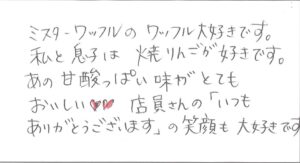 ミスターワッフルの ワッフル大好きです。
私と息子は 焼りんごが好きです。
あの 甘酸っぱい 味が とても
おいしい♥♥ 店員さんの「いつも
ありがとうございます」の笑顔も 大好きです